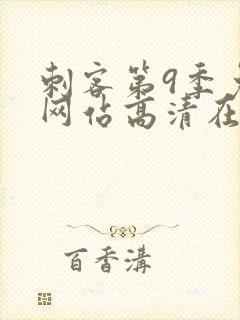 刺客第9季
网佔高清在
百香溝